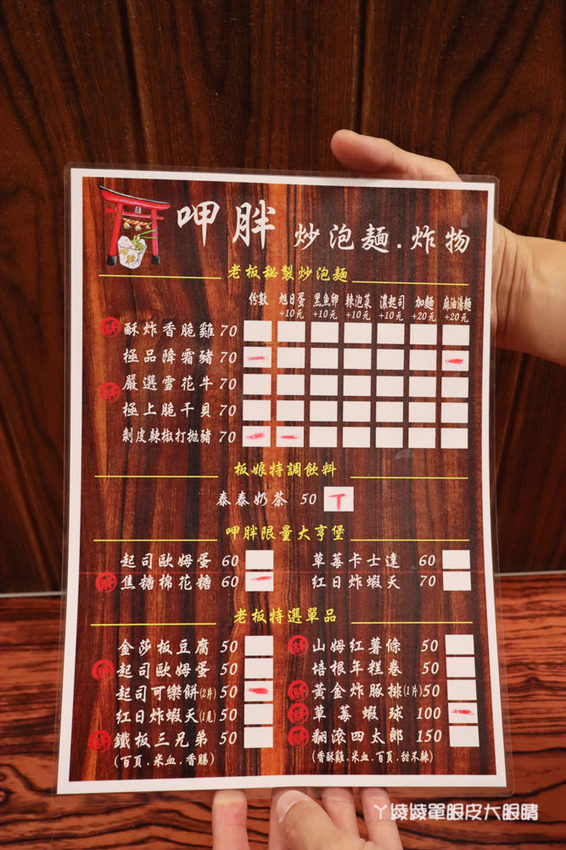 呷胖 炒泡麵.炸物
老板秘製炒泡麵
份數 旭日蛋+10元 黑魚卵+10元 辣泡菜+10元 濃起司+10元 加麵+20元 麻油清麵+20元
酥炸香脆雞 70
極品降霜豬 70
嚴選雪花牛 70
極上脆干貝 70
剝皮辣椒打拋豬 70
板娘特調飲料
泰泰奶茶 50 T
呷胖限量大亨堡
起司歐姆蛋 60 草莓卡士達 60
焦糖棉花糖 60 紅日炸蝦天 70
老板特選單品
金莎板豆腐 50 山姆紅薯條 50
起司歐姆蛋 50 培根年糕卷 50
起司可樂餅(2片) 50 黃金炸豚排(1片) 50
紅日炸蝦天(1尾) 50 草莓蝦球 100
鐵板三兄弟 50 翻滾四太郎 150
(百頁.米血.香腸) (香酥雞.米血.百頁.甜不辣)
ㄚ綾綾單眼皮大眼睛